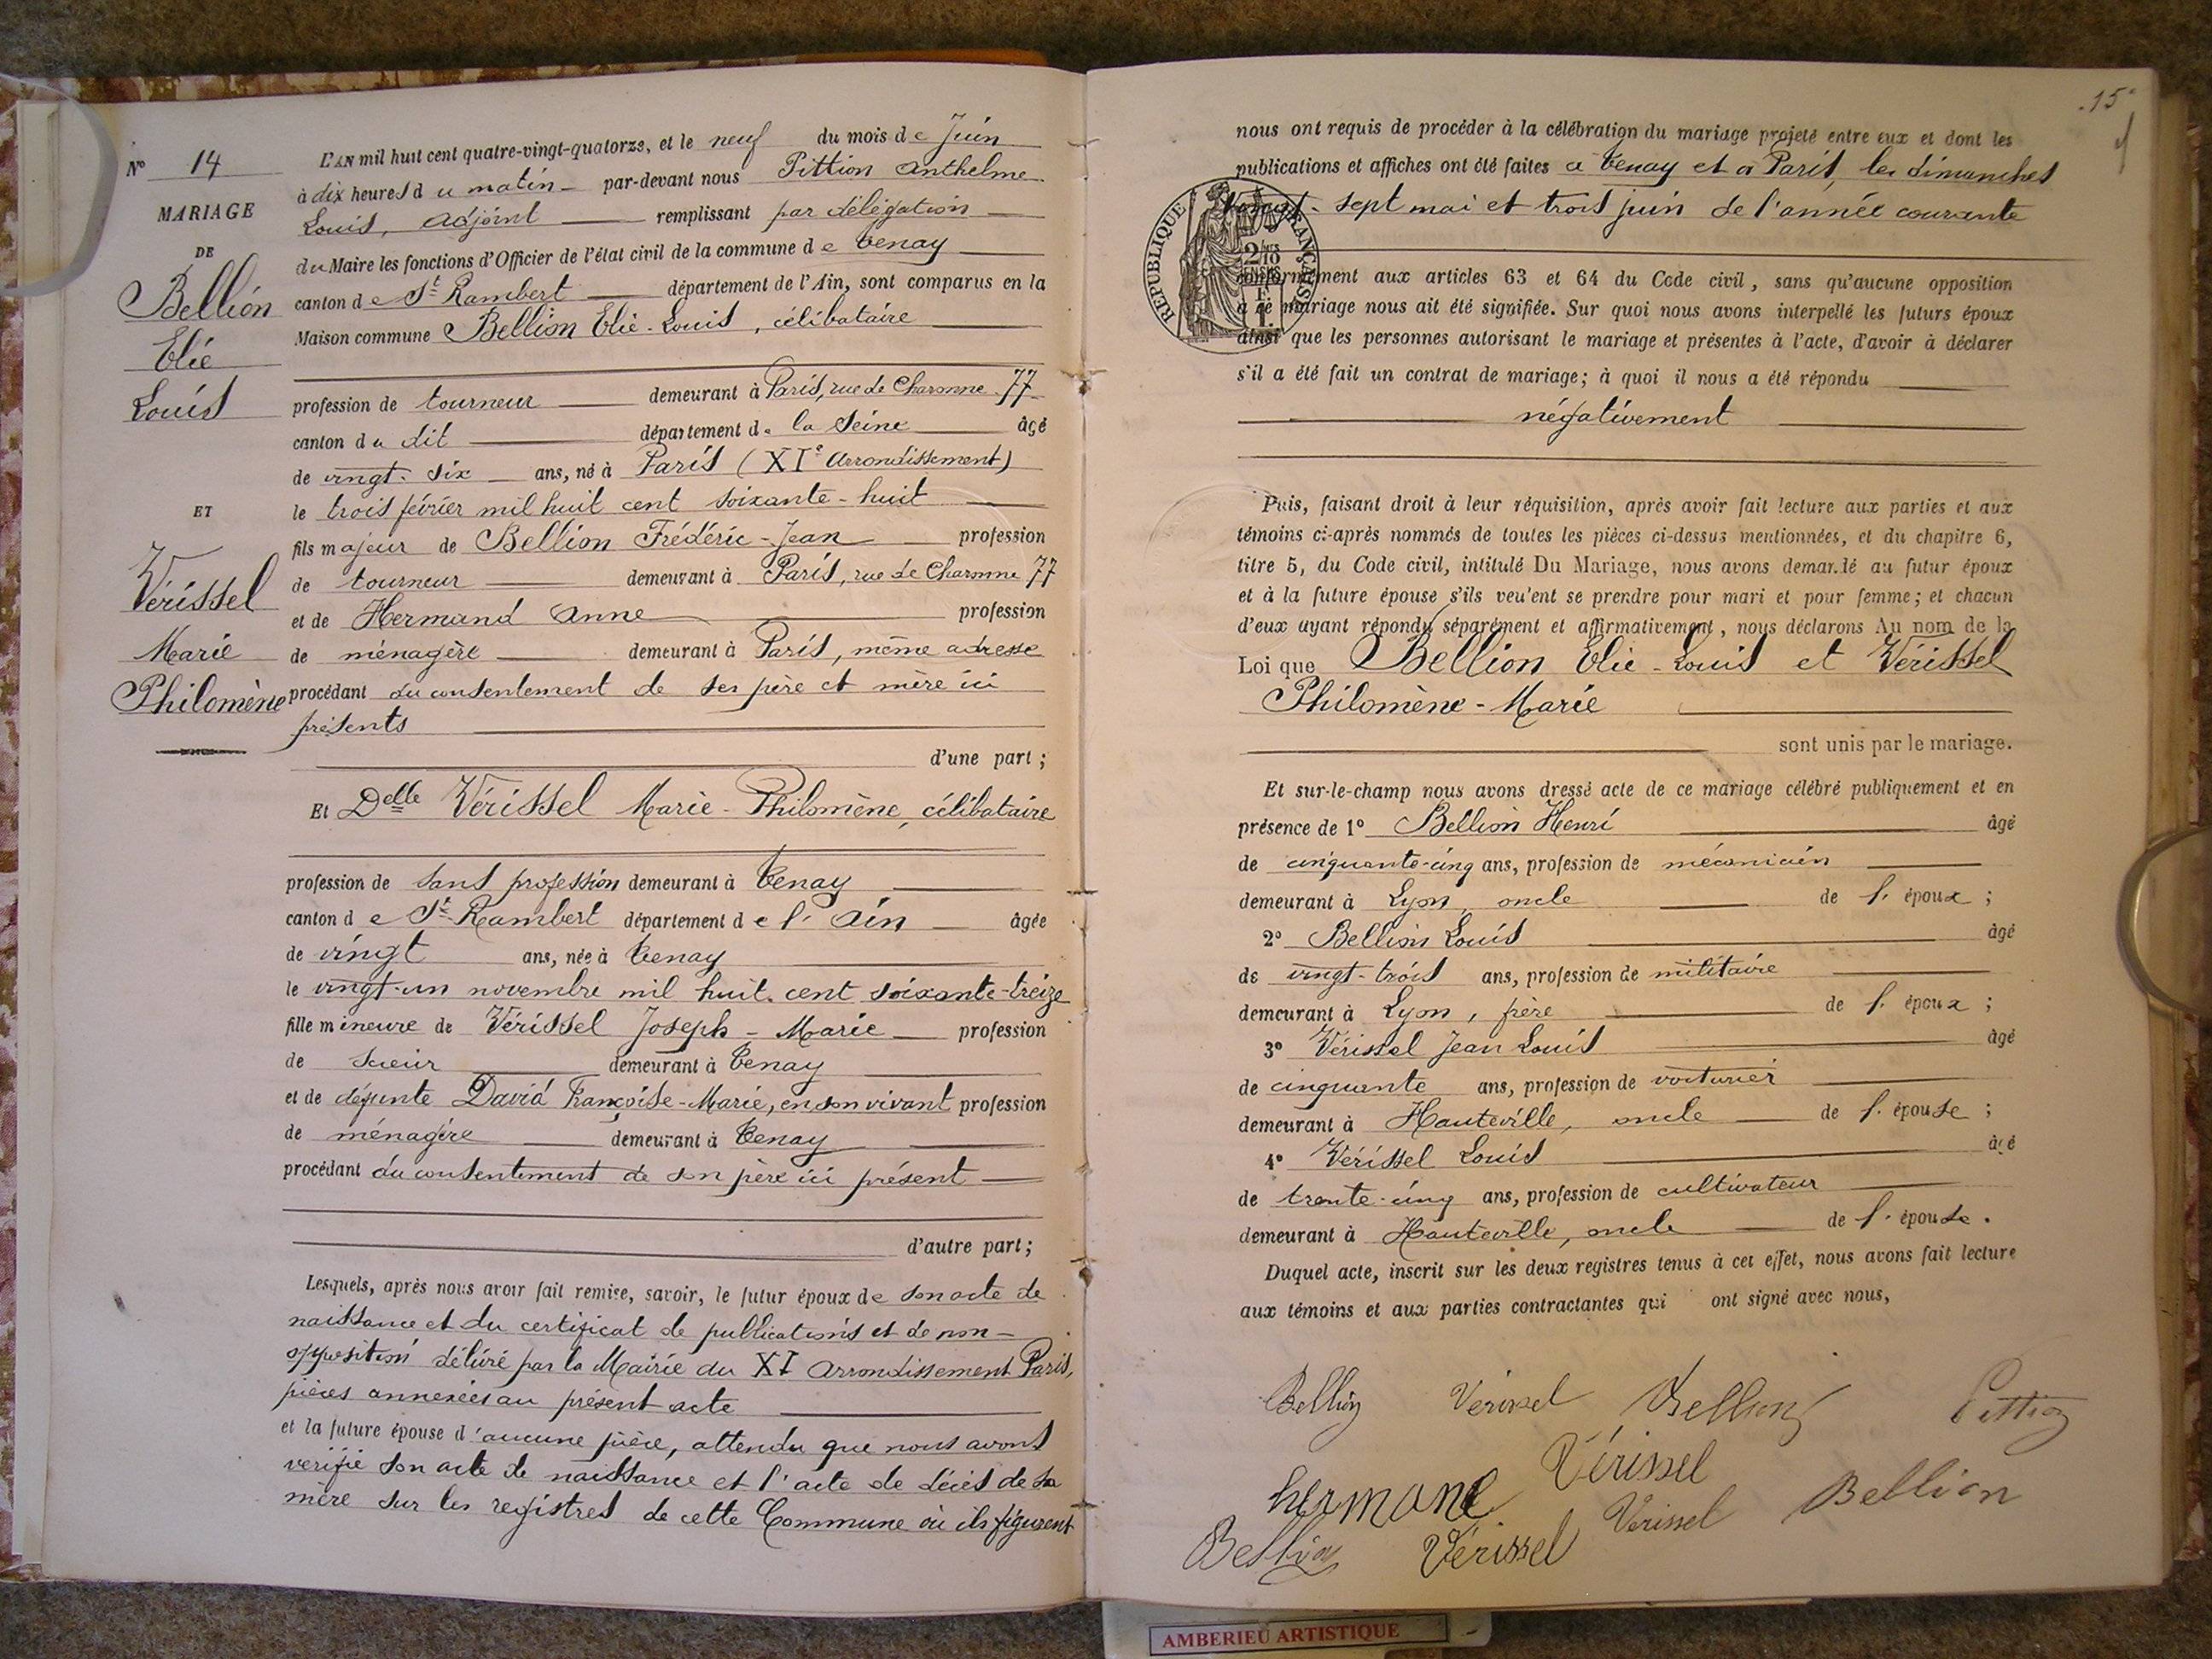 Nº 14
MARIAGE
DE
Bellion
Elie
Louis
ET
Vérissel
Marie
Philomène
L'AN mil huit cent quatre-vingt-quatorze, et le neuf du mois de Juin
à dix heures du matin - par-devant nous Pittion Anthelme
Louis, Adjoint remplissant par délégation
du Maire les fonctions d'Officier de l'état civil de la commune de Tenay
canton de St Rambert département de l'Ain, sont comparus en la
Maison commune Bellion Elie-Louis, célibataire
profession de tourneur demeurant à Paris, rue de Charonne 77
canton du dit département de la Seine âgé
de vingt-six ans, né à Paris (XIe Arrondissement)
le trois février mil huit cent soixante-huit
fils majeur de Bellion Frédéric-Jean profession
de tourneur demeurant à Paris, rue de Charonne 77
et de Hermand Anne profession
de ménagère demeurant à Paris, même adresse
procédant du consentement de ses père et mère ici
présents
d'une part ;
Et Delle Vérissel Marie-Philomène, célibataire
profession de sans profession demeurant à Tenay
canton de St Rambert département de l'Ain âgée
de vingt ans, née à Tenay
le vingt-un novembre mil huit cent soixante-treize
fille mineure de Vérissel Joseph-Marie profession
de scieur demeurant à Tenay
et de défunte David Françoise-Marie, en son vivant profession
de ménagère demeurant à Tenay
procédant du consentement de son père ici présent
d'autre part ;
Lesquels, après nous avoir fait remise, savoir, le futur époux de son acte de
naissance et du certificat de publications et de non-
opposition délivré par la Mairie du XI Arrondissement Paris,
pièces annexées au présent acte
et la future épouse d'aucune pièce, attendu que nous avons
vérifié son acte de naissance et l'acte de décès de sa
mère sur les registres de cette Commune où ils figurent
15
nous ont requis de procéder à la célébration du mariage projeté entre eux et dont les
publications et affiches ont été faites à Tenay et à Paris, les dimanches
vingt-sept mai et trois juin de l'année courante
REPUBLIQUE FRANÇAISE
conformément aux articles 63 et 64 du Code civil, sans qu'aucune opposition
à ce mariage nous ait été signifiée. Sur quoi nous avons interpellé les futurs époux
ainsi que les personnes autorisant le mariage et présentes à l'acte, d'avoir à déclarer
s'il a été fait un contrat de mariage; à quoi il nous a été répondu
négativement
Puis, faisant droit à leur réquisition, après avoir fait lecture aux parties et aux
témoins ci-après nommés de toutes les pièces ci-dessus mentionnées, et du chapitre 6,
titre 5, du Code civil, intitulé Du Mariage, nous avons demandé au futur époux
et à la future épouse s'ils veulent se prendre pour mari et pour femme; et chacun
d'eux ayant répondu séparément et affirmativement, nous déclarons Au nom de la
Loi que Bellion Elie-Louis et Vérissel
Philomène-Marie
sont unis par le mariage.
Et sur-le-champ nous avons dressé acte de ce mariage célébré publiquement et en
présence de 1º Bellion Henri âgé
de cinquante-cinq ans, profession de mécanicien
demeurant à Lyon, oncle de l'époux ;
2º Bellion Louis âgé
de vingt-trois ans, profession de militaire
demeurant à Lyon, frère de l'époux ;
3º Vérissel Jean Louis âgé
de cinquante ans, profession de voiturier
demeurant à Hauteville, oncle de l'épouse ;
4º Vérissel Louis âgé
de trente-cinq ans, profession de cultivateur
demeurant à Hauteville, oncle de l'épouse.
Duquel acte, inscrit sur les deux registres tenus à cet effet, nous avons fait lecture
aux témoins et aux parties contractantes qui ont signé avec nous,
Bellion Vérissel Bellion Pittion
Vérissel
hermand Vérissel Bellion
Bellion Vérissel
AMBERIEU ARTISTIQUE